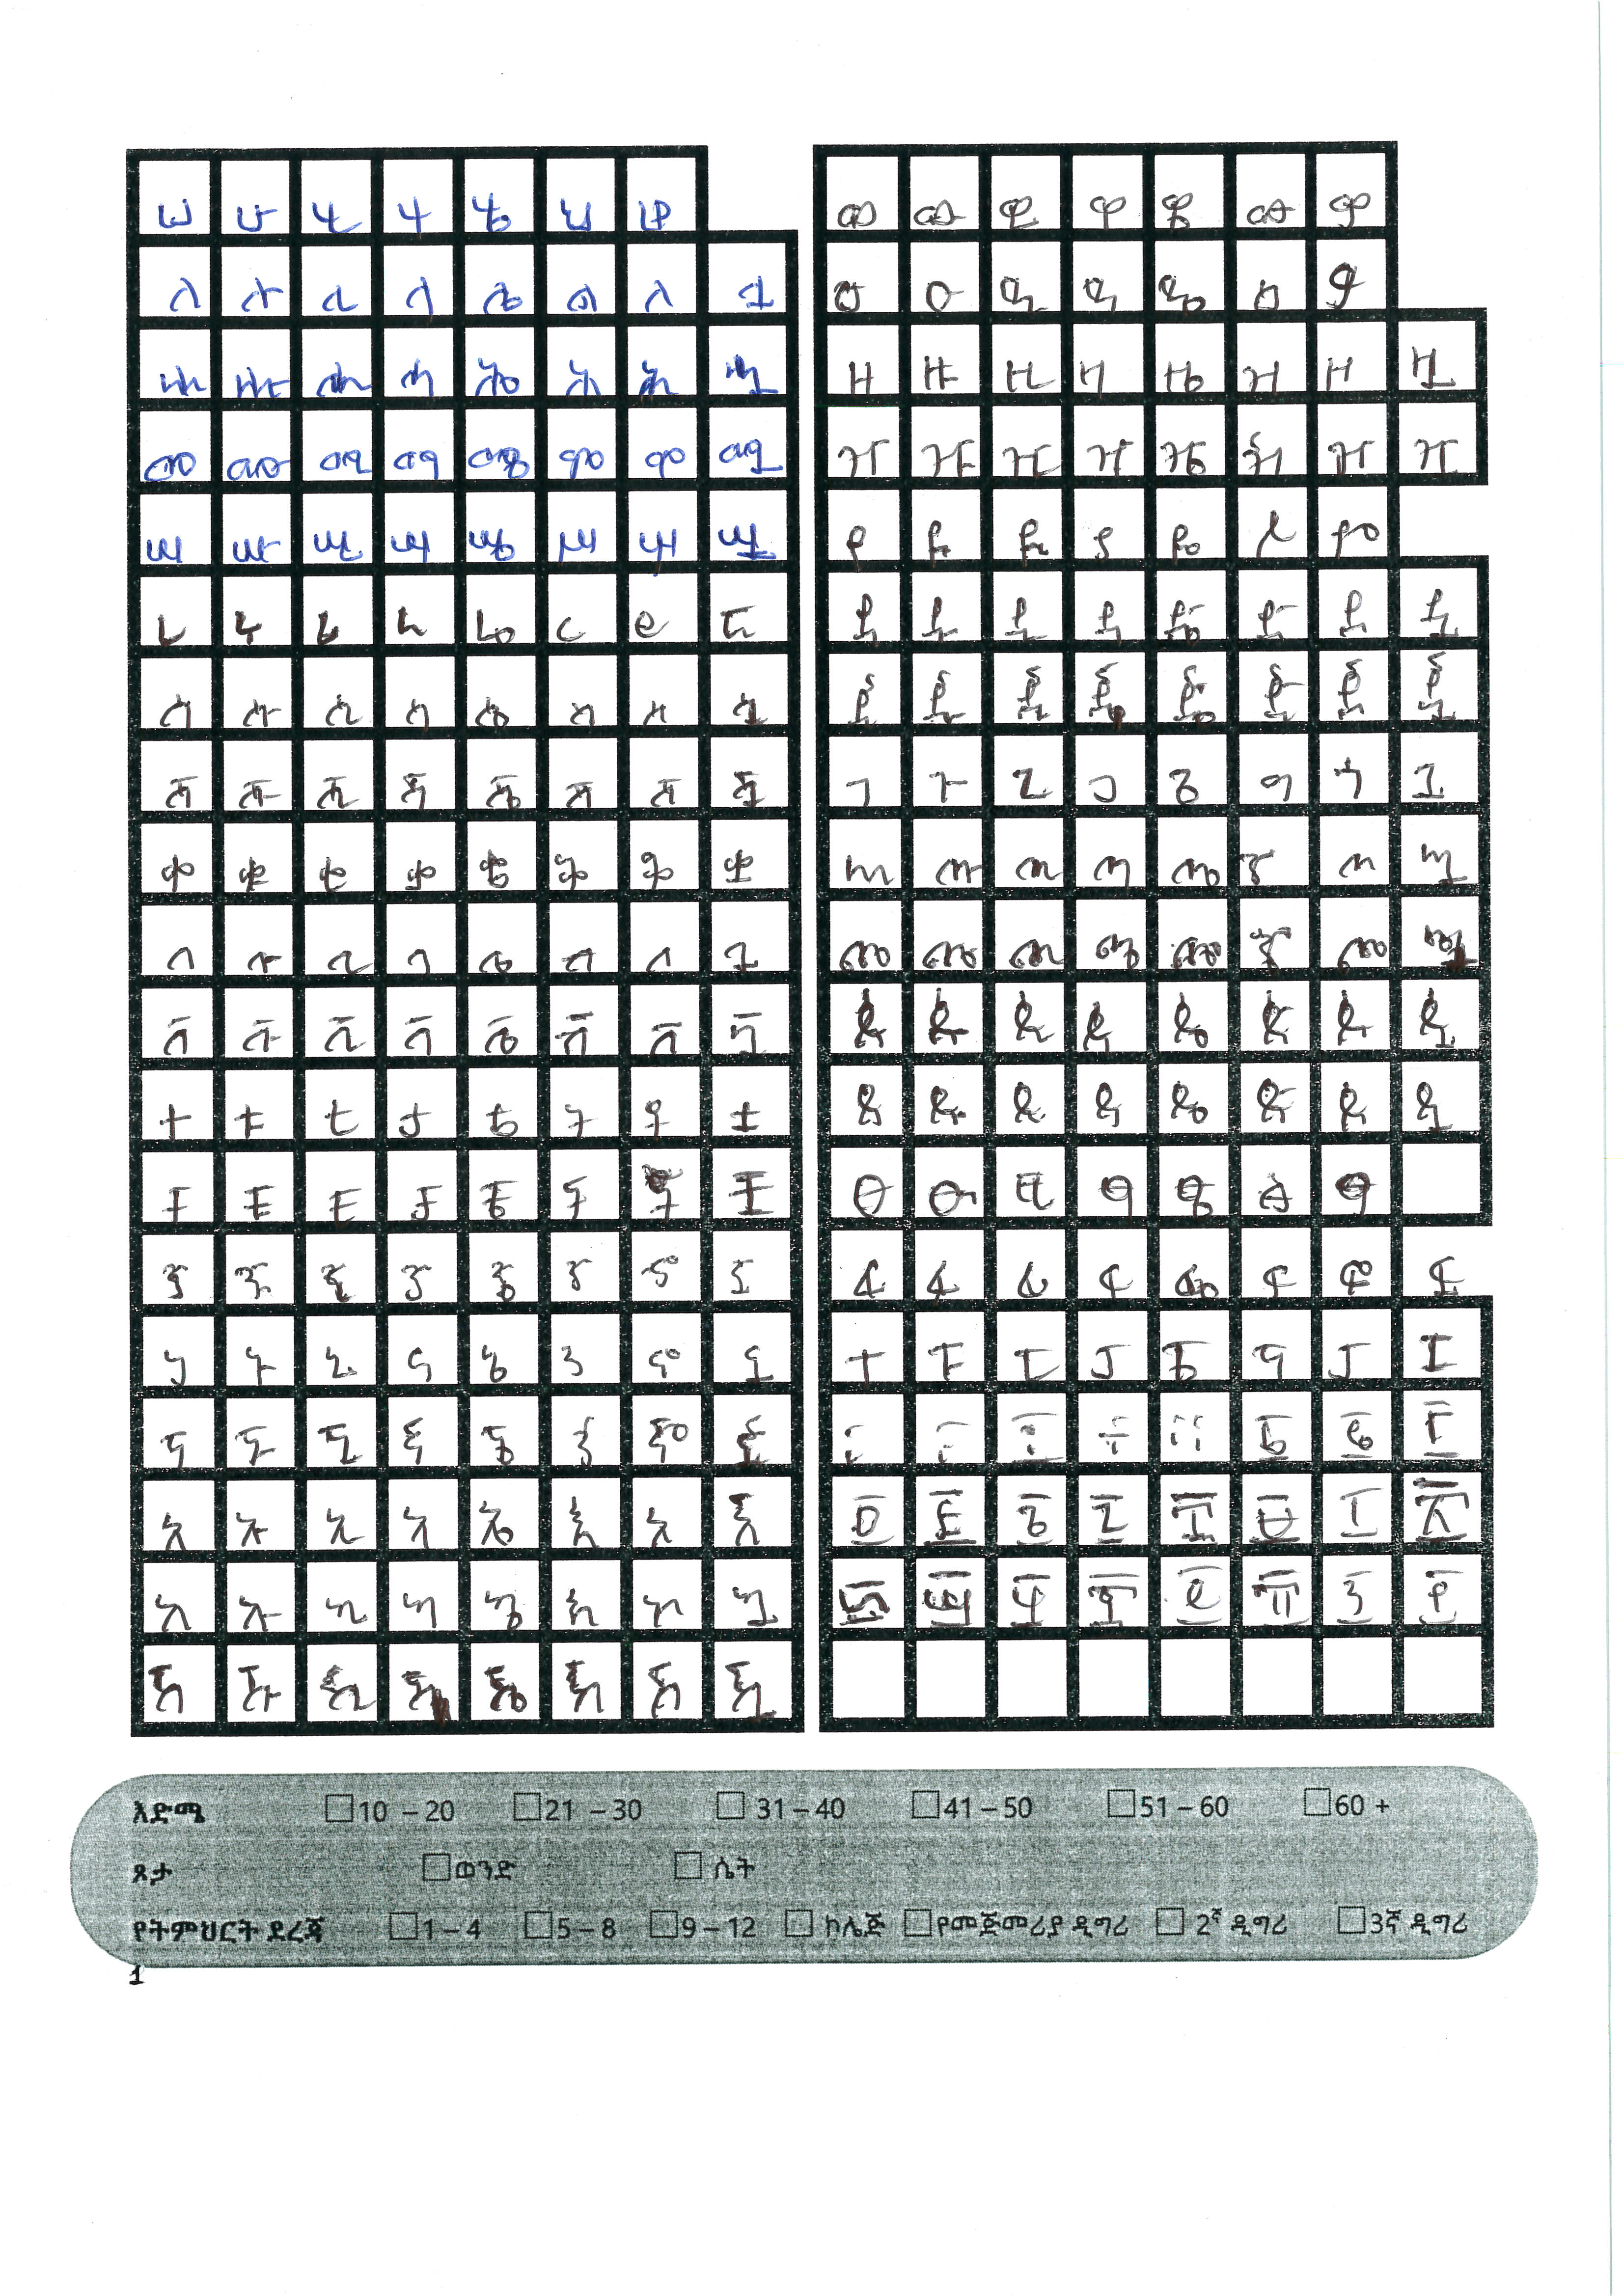 ሀ ሁ ሂ ሃ ሄ ህ ሆ
ለ ሉ ሊ ላ ሌ ል ሎ ሏ
ሐ ሑ ሒ ሓ ሔ ሕ ሖ ሗ
መ ሙ ሚ ማ ሜ ም ሞ ሟ
ሠ ሡ ሢ ሣ ሤ ሥ ሦ ሧ
ረ ሩ ሪ ራ ሬ ር ሮ ሯ
ሰ ሱ ሲ ሳ ሴ ስ ሶ ሷ
ሸ ሹ ሺ ሻ ሼ ሽ ሾ ሿ
ቀ ቁ ቂ ቃ ቄ ቅ ቆ ቋ
በ ቡ ቢ ባ ቤ ብ ቦ ቧ
ቨ ቩ ቪ ቫ ቬ ቭ ቮ ቯ
ተ ቱ ቲ ታ ቴ ት ቶ ቷ
ቸ ቹ ቺ ቻ ቼ ች ቾ ቿ
ነ ኑ ኒ ና ኔ ን ኖ ኗ
ኘ ኙ ኚ ኛ ኜ ኝ ኞ ኟ
አ ኡ ኢ ኣ ኤ እ ኦ ኧ
ከ ኩ ኪ ካ ኬ ክ ኮ ኳ
ኸ ኹ ኺ ኻ ኼ ኽ ኾ ዃ
ወ ዉ ዊ ዋ ዌ ው ዎ
ዐ ዑ ዒ ዓ ዔ ዕ ዖ
ዘ ዙ ዚ ዛ ዜ ዝ ዞ ዟ
ዠ ዡ ዢ ዣ ዤ ዥ ዦ ዧ
የ ዩ ዪ ያ ዬ ይ ዮ
ደ ዱ ዲ ዳ ዴ ድ ዶ ዷ
ጀ ጁ ጂ ጃ ጄ ጅ ጆ ጇ
ገ ጉ ጊ ጋ ጌ ግ ጎ ጓ
ጠ ጡ ጢ ጣ ጤ ጥ ጦ ጧ
ጨ ጩ ጪ ጫ ጬ ጭ ጮ ጯ
ጰ ጱ ጲ ጳ ጴ ጵ ጶ ጷ
ጸ ጹ ጺ ጻ ጼ ጽ ጾ ጿ
ፀ ፁ ፂ ፃ ፄ ፅ ፆ
ፈ ፉ ፊ ፋ ፌ ፍ ፎ ፏ
ፐ ፑ ፒ ፓ ፔ ፕ ፖ ፗ
እድሜ 10 – 20 21 – 30 31 – 40 41 – 50 51 – 60 60 +
ጾታ ወንድ ሴት
የትምህርት ደረጃ 1 – 4 5 – 8 9 – 12 ኮሌጅ የመጀመሪያ ዲግሪ 2ኛ ዲግሪ 3ኛ ዲግሪ
1